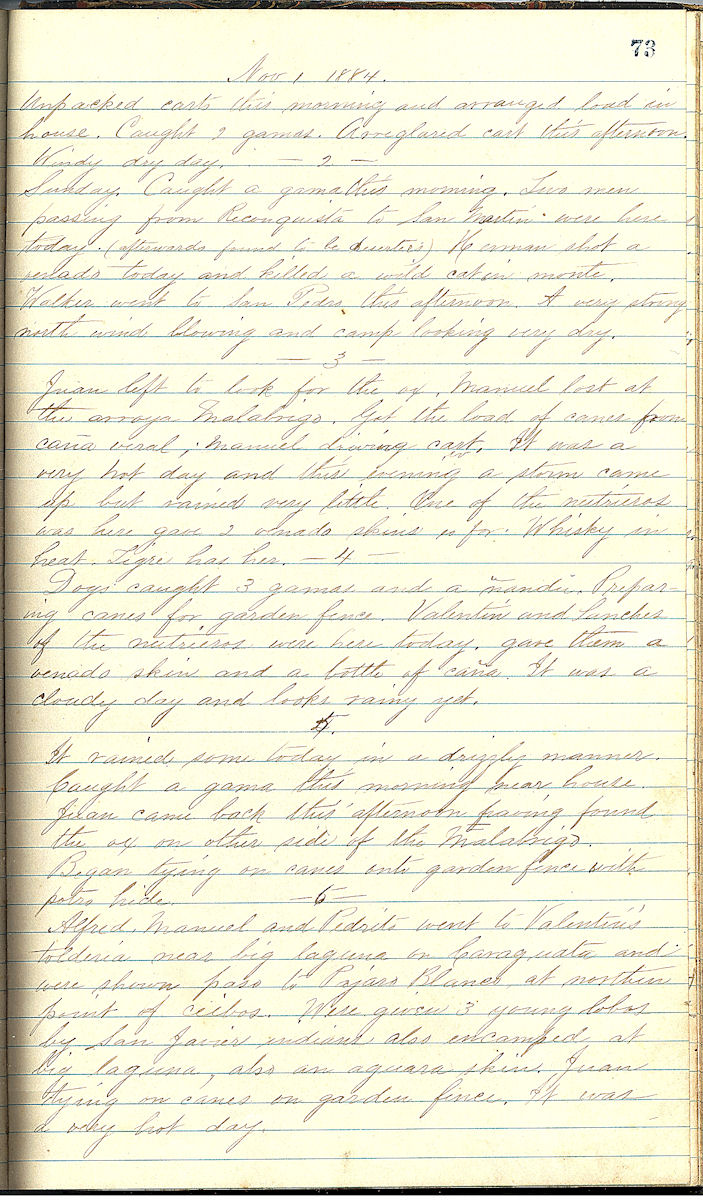 73
Nov 1 1884.
Unpacked carts this morning and arranged load in
house. Caught 2 gamas. Arreglared cart this afternoon.
Windy dry day. — 2 —
Sunday. Caught a gama this morning. Two men
passing from Reconquista to San Martin were here
today. (afterwards found to be deserters) Herman shot a
venado today and killed a wild cat in monte.
Walker went to San Pedro this afternoon. A very strong
north wind blowing and camp looking very dry.
— 3 —
Juan left to look for the ox, Manuel lost at
the arroya Malabrigo. Got the load of canes from
caña veral, Manuel driving cart. It was a
very hot day and this evening a storm came
up but rained very little. One of the nutrieros
was here gave 2 venado skins for. Whisky in
heat. Tigre has her. — 4 —
Dogs caught 3 gamas and a ñandu. Prepar-
ing canes for garden fence. Valentin and Sanches
of the nutrieros were here today. gave them a
venado skin and a bottle of caña. It was a
cloudy day and looks rainy yet.
5.
It rained some today in a drizzly manner.
Caught a gama this morning near house.
Juan came back this afternoon having found
the ox on other side of the Malabrigo.
Began tying on canes onto garden fence with
potro hide. — 6 —
Alfred, Manuel and Pedrito went to Valentin's
tolderia near big laguna on Caraguata and
were shown paso to Pajaro Blanco at northern
point of ceibos. Were given 3 young lobos
by San Javier indians also encamped at
big laguna, also an aguara skin. Juan
tying on canes on garden fence. It was
a very hot day.